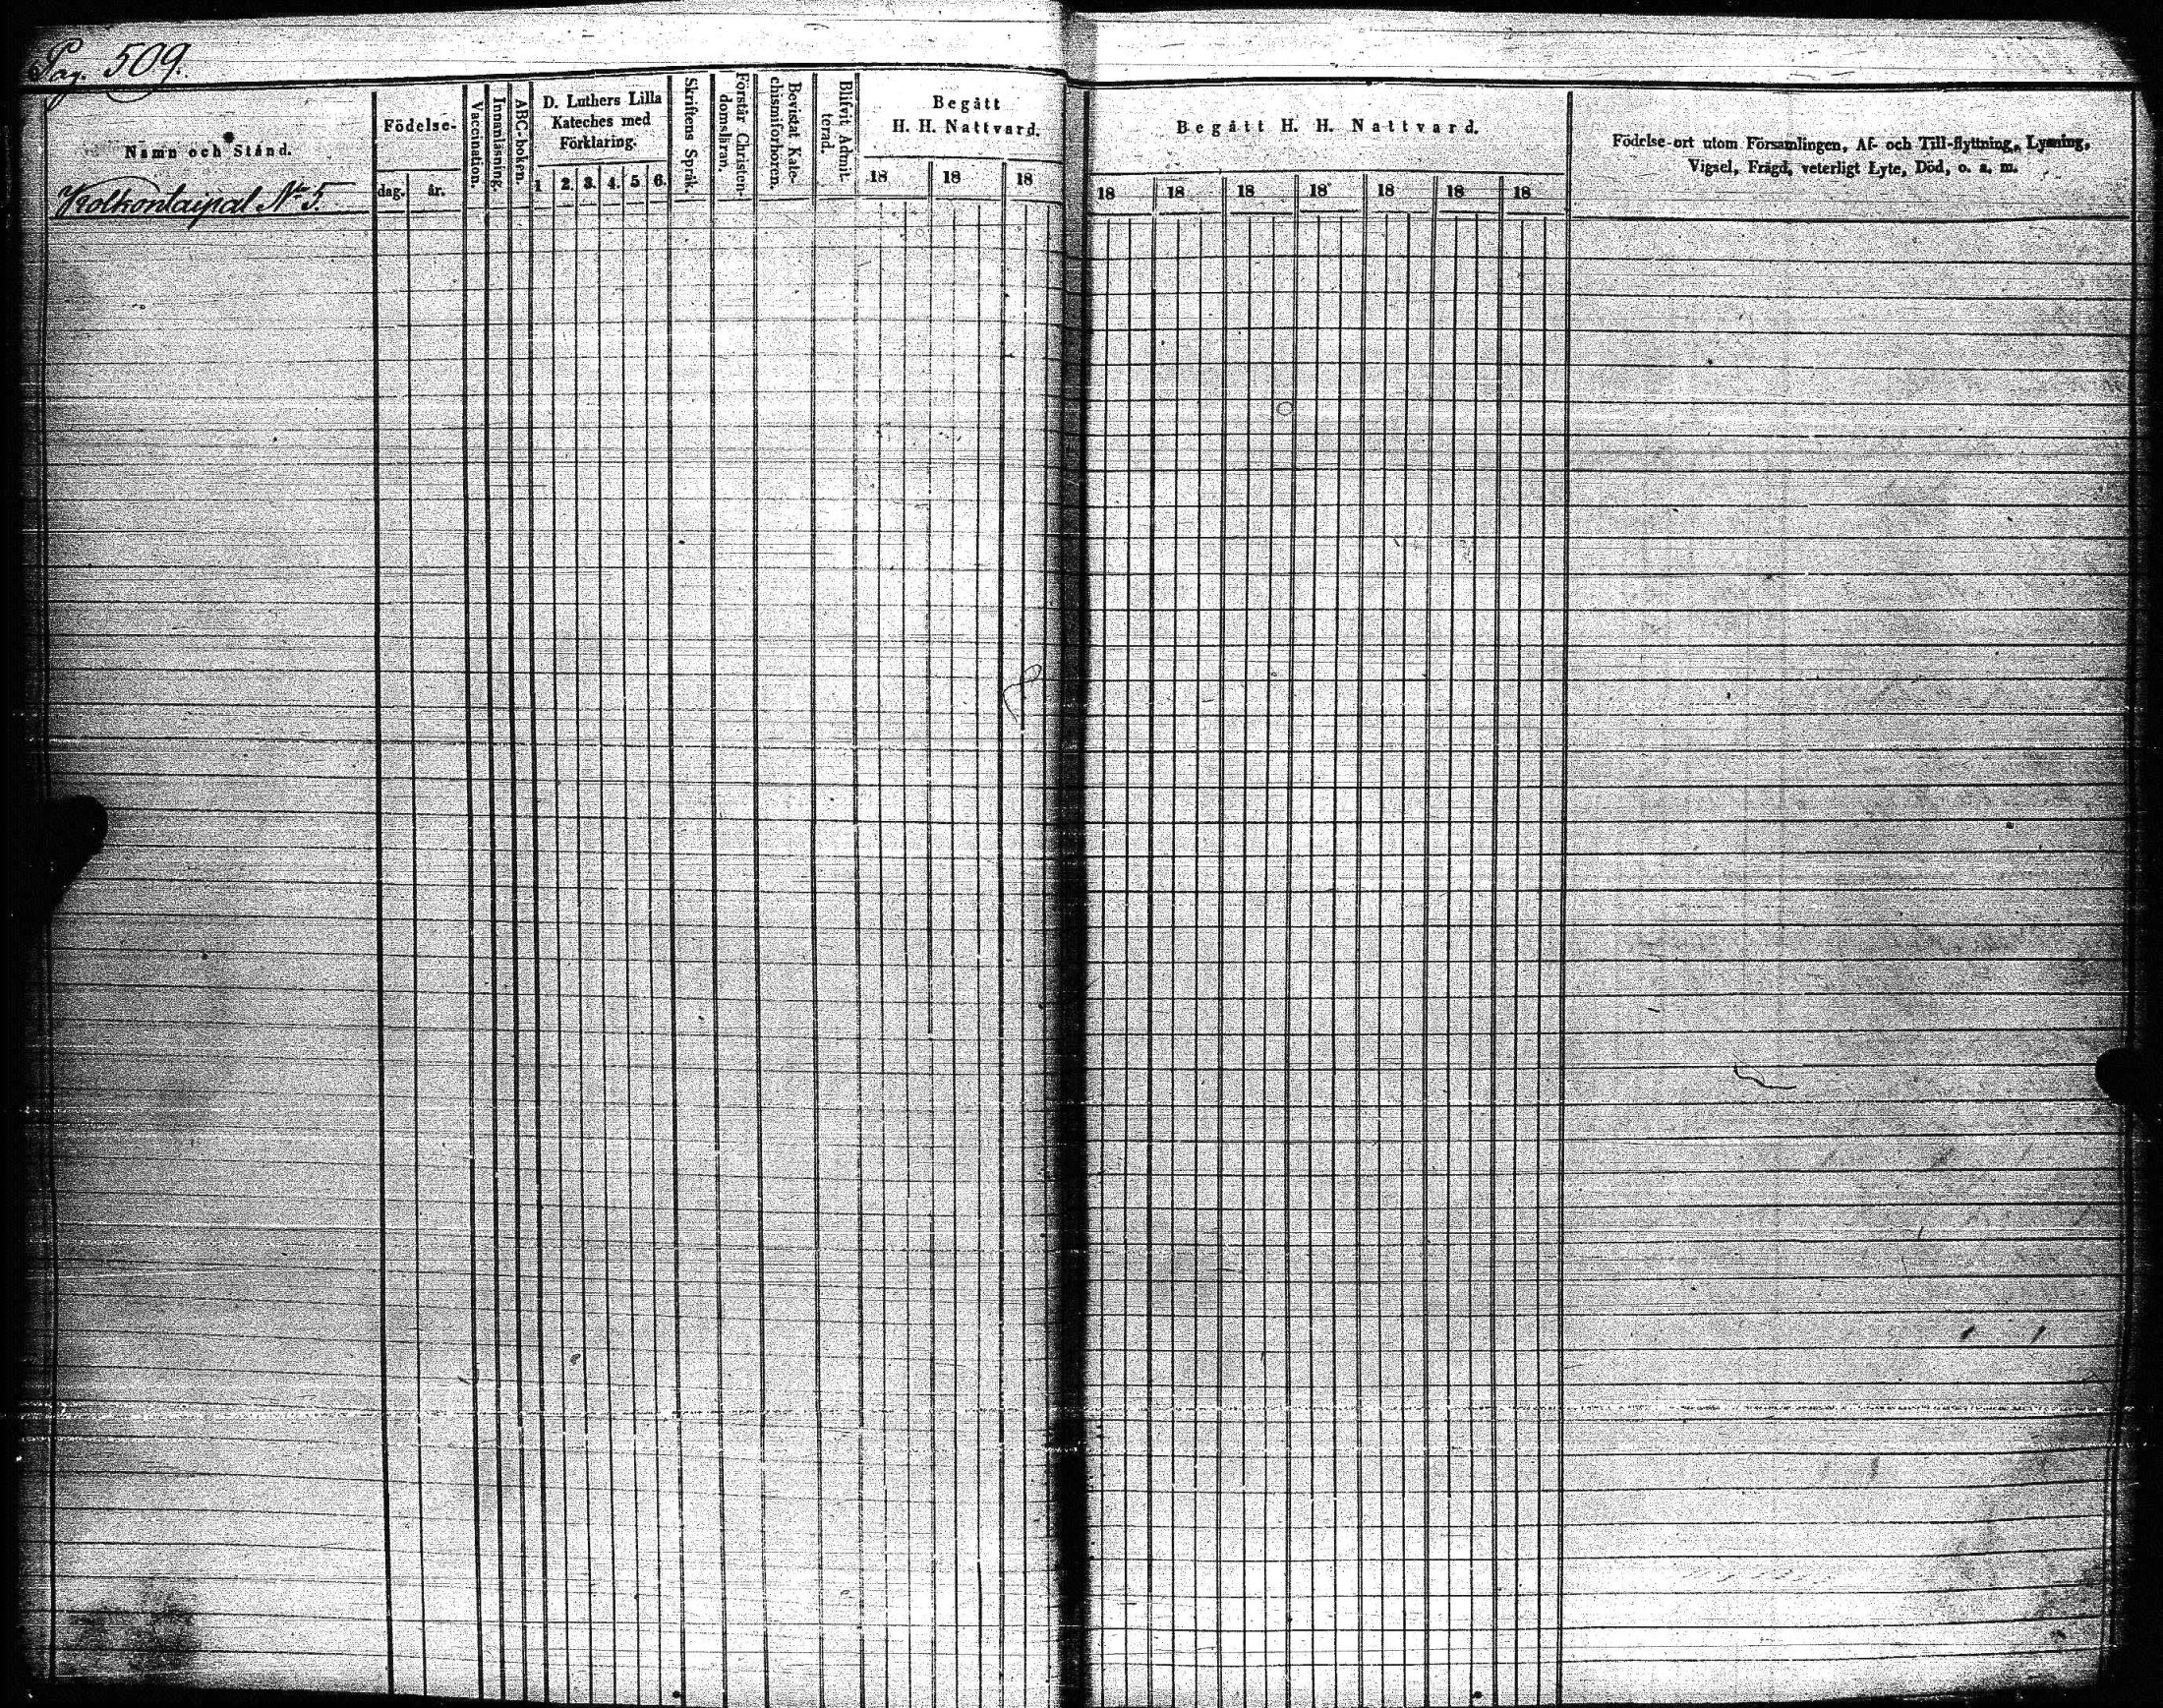 Pag. 509.
Namn och Stånd.
Kolkontaipal No 5.
Födelse-
dag. år.
Vaccination.
Innanläsning.
ABC-boken.
D. Luthers Lilla
Kateches med
Förklaring.
1 2. 3. 4. 5 6.
Skriftens Språk.
Förstår Christen-
domsläran.
Bevistat Kate-
chismiförhören.
Blifvit Admit-
terad.
Begått
H. H. Nattvard.
18 18 18
Begått H. H. Nattvard.
18 18 18 18 18 18 18
Födelse-ort utom Församlingen, Af- och Till-flyttning, Lysning,
Vigsel, Frägd, veterligt Lyte, Död, o. s. m.